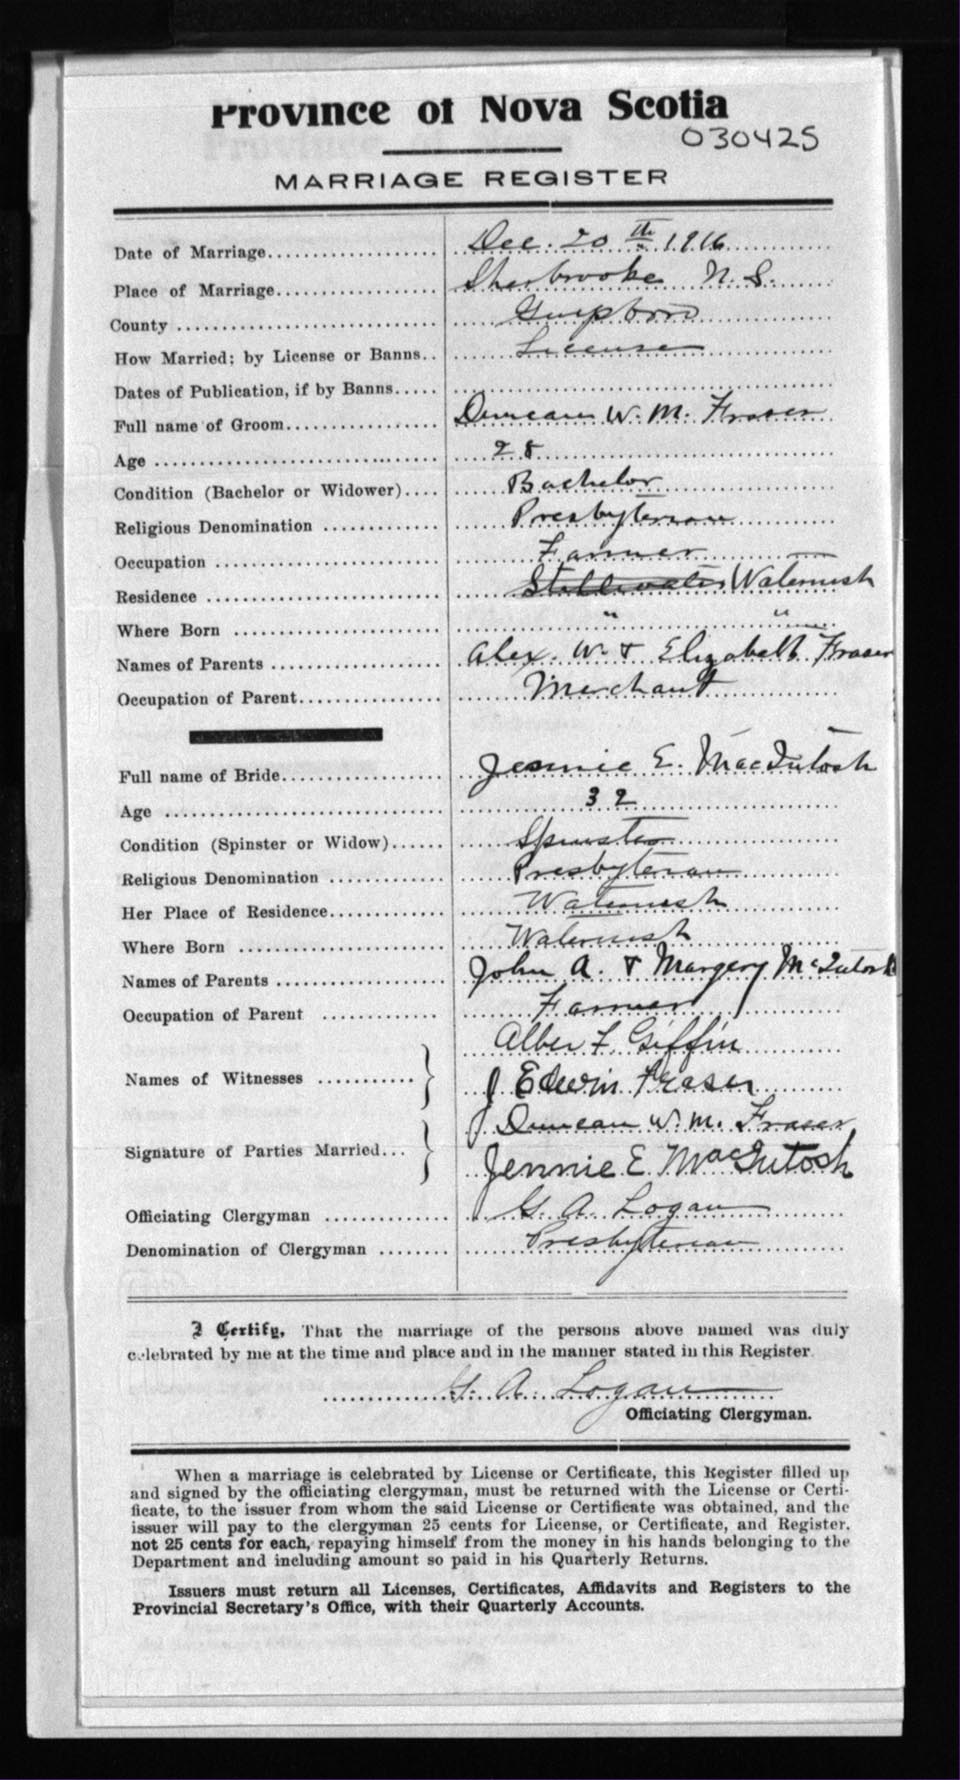 Province of Nova Scotia
030425
MARRIAGE REGISTER
Date of Marriage.................. Dec. 20th 1916
Place of Marriage................. Sherbrooke N.S.
County ........................... Guysboro
How Married; by License or Banns.. License
Dates of Publication, if by Banns.....
Full name of Groom................ Duncan W. M. Fraser
Age .............................. 28
Condition (Bachelor or Widower).... Bachelor
Religious Denomination ............ Presbyterian
Occupation ....................... Farmer
Residence ........................ Stillwater Waternish
Where Born ....................... " "
Names of Parents ................. Alex. W. & Elizabeth Fraser
Occupation of Parent.............. Merchant
Full name of Bride................ Jennie E. MacIntosh
Age .............................. 32
Condition (Spinster or Widow)...... Spinster
Religious Denomination ............ Presbyterian
Her Place of Residence............ Waternish
Where Born ....................... Waternish
Names of Parents ................. John A. & Margery McIntosh
Occupation of Parent ............. Farmer
Names of Witnesses ............ } Alber F. Giffin
J Edwin Fraser
Signature of Parties Married... } Duncan W. M. Fraser
Jennie E. MacIntosh
Officiating Clergyman ............. G. A. Logan
Denomination of Clergyman ........ Presbyterian
I Certify, That the marriage of the persons above named was duly
celebrated by me at the time and place and in the manner stated in this Register.
G. A. Logan
Officiating Clergyman.
When a marriage is celebrated by License or Certificate, this Register filled up
and signed by the officiating clergyman, must be returned with the License or Certi-
ficate, to the issuer from whom the said License or Certificate was obtained, and the
issuer will pay to the clergyman 25 cents for License, or Certificate, and Register.
not 25 cents for each, repaying himself from the money in his hands belonging to the
Department and including amount so paid in his Quarterly Returns.
Issuers must return all Licenses, Certificates, Affidavits and Registers to the
Provincial Secretary's Office, with their Quarterly Accounts.